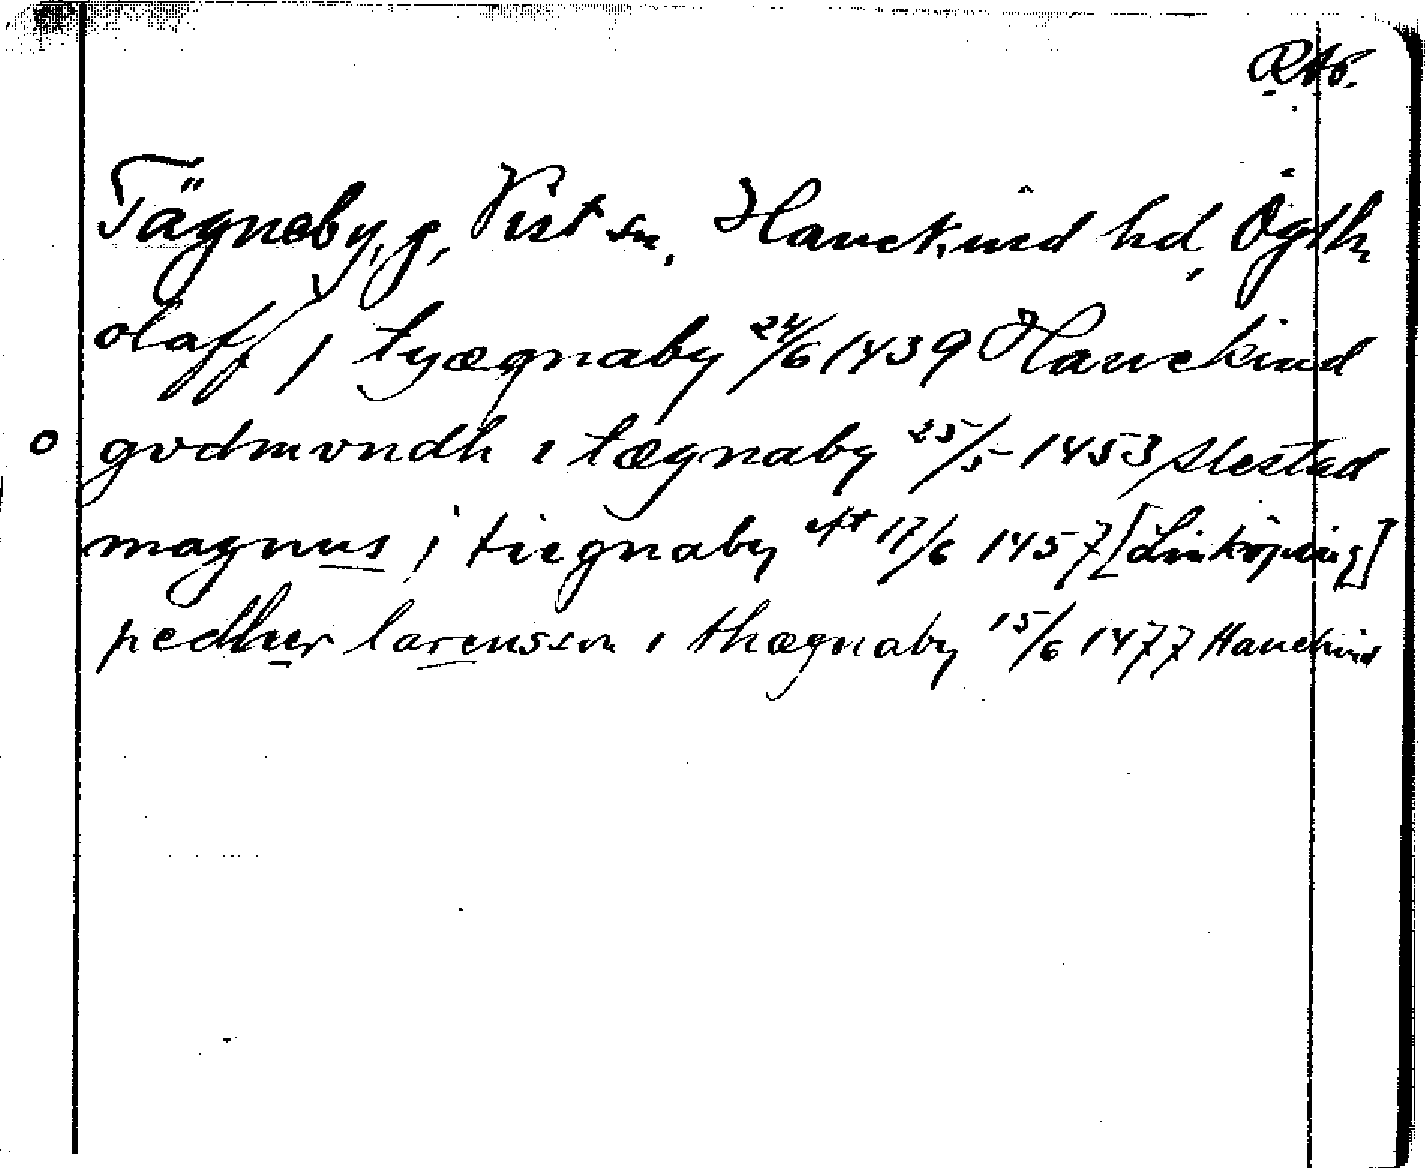 RAp.
Tägneby, g, Vist sn, Hanekind hd, Ögtl.
olaff j tyægnaby 24/6 1439 Hanekind
o gvdmvndh i tægnaby 25/5 1453 slestad
magnus j tiegnaby eft 17/6 1457 [Linköping]
pedher larensson i thægnaby 15/6 1477 Hanekind